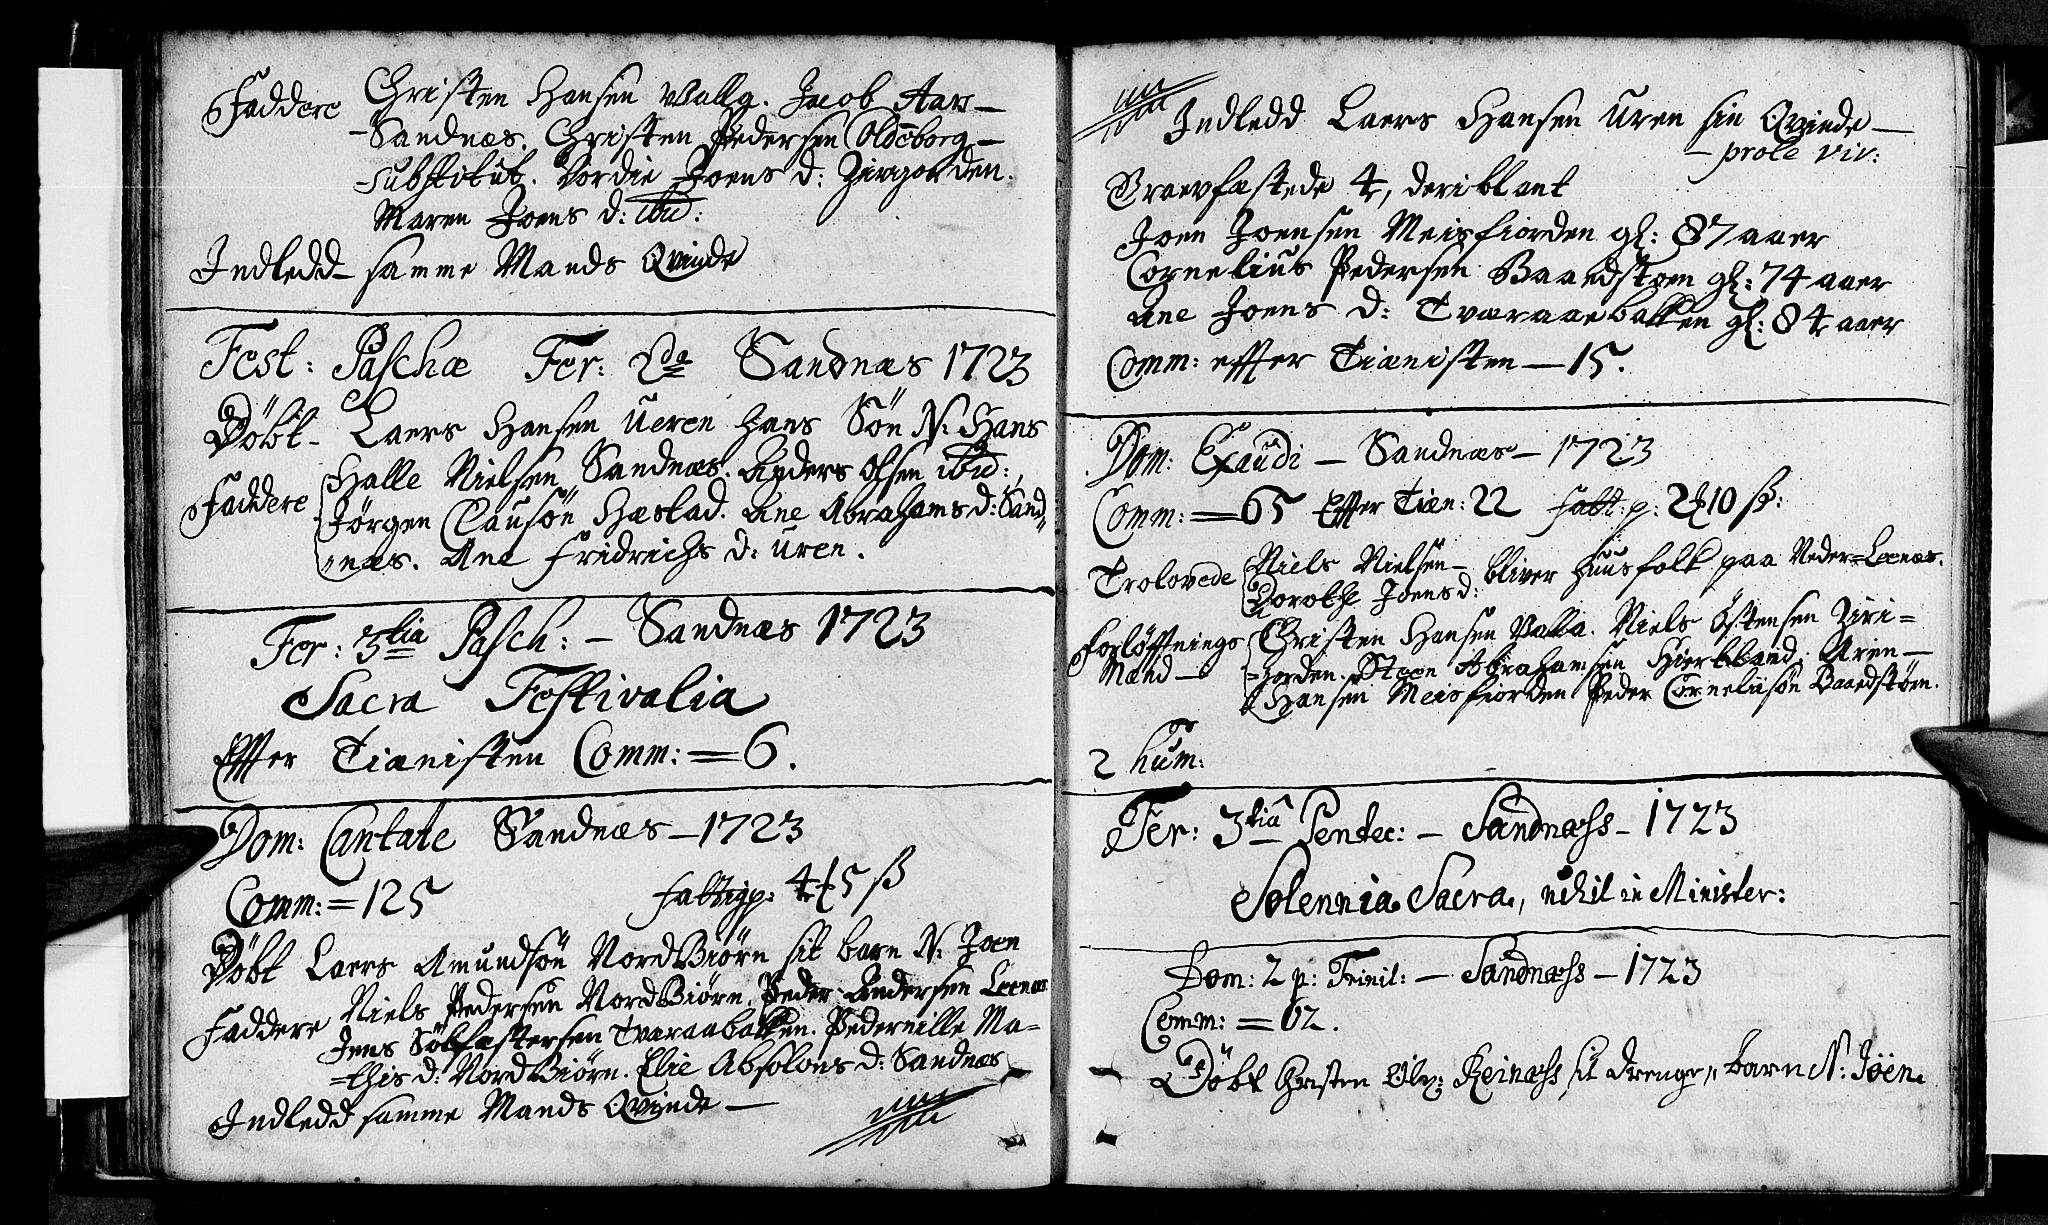 Faddere Christen Hansen Valla. Jacob Aar-
-Sandnæs. Christen Pedersen Oldeborg-
-substitut. Vordie Joens d: Zirigorden.
Maren Joens d: ibid:
Indledd samme Mands Qvinde
Fest: Paschæ Fer: 2da Sandnæs 1723
Döbt- Laers Hansen Ueren hans Sön N: Hans
Faddere Halle Nielsen Sandnæs. Anders Olsen ibid:,
Jörgen Clausön Hæstad. Ane Abrahams d: Sand"
"næs. Ane Fridrichs d: Uren.
Fer: 3tia Pasch: - Sandnæs 1723
Sacra Festivalia
Effter Tiænisten Comm: = 6.
Dom: Cantate Sandnæs - 1723
Comm: = 125 fattigp: 4 ₰ 5 ß
Döbt Laers Amundsön NordBiörn sit barn N: Joen
Faddere Niels Pedersen NordBiörn. Peder Andersen Leenæs
Jens Sölfæstersen Tværaabakken. Pedernille Ma=
=this d: NordBiörn. Elie Absolons d: Sandnæs
Indledd samme Mands Qvinde -
Indledd Laers Hansen Uren sin Qvinde -
- prole viv:
Graevfæstede 4, deriblant
Joen Joensen Meisfiorden gl: 87 aaer
Cornelius Pedersen Baaedstöen gl: 74 aaer
Ane Joens d: Tværaaebakken gl: 84 aaer
Comm: effter Tiænisten - 15.
Dom: Exaudi - Sandnæs - 1723
Comm: = 65 Effter Tiæn: 22 fatt: p: 2 ₰ 10 ß:
Trolovede Niels Nielsen - bliver huusfolk paa Neder=Leenæs.
Dorothe Joens d:
Forlöffnings Christen Hansen Valla. Niels Östensen Ziri=
Mænd - =gorden. Steen Abrahamsen Hierteland. Aren -
Hansen Meisfiorden Peder Corneliusön Baaedstöen.
2 hum:
Fer: 3tia Pentec: - Sandnæss - 1723
Solennia Sacra, nihil in Minister:
Dom: 2 p: Trinit: - Sandnæss - 1723
Comm: = 62.
Döbt Christen Reinæss, sit drenge" barn N: Jöen.